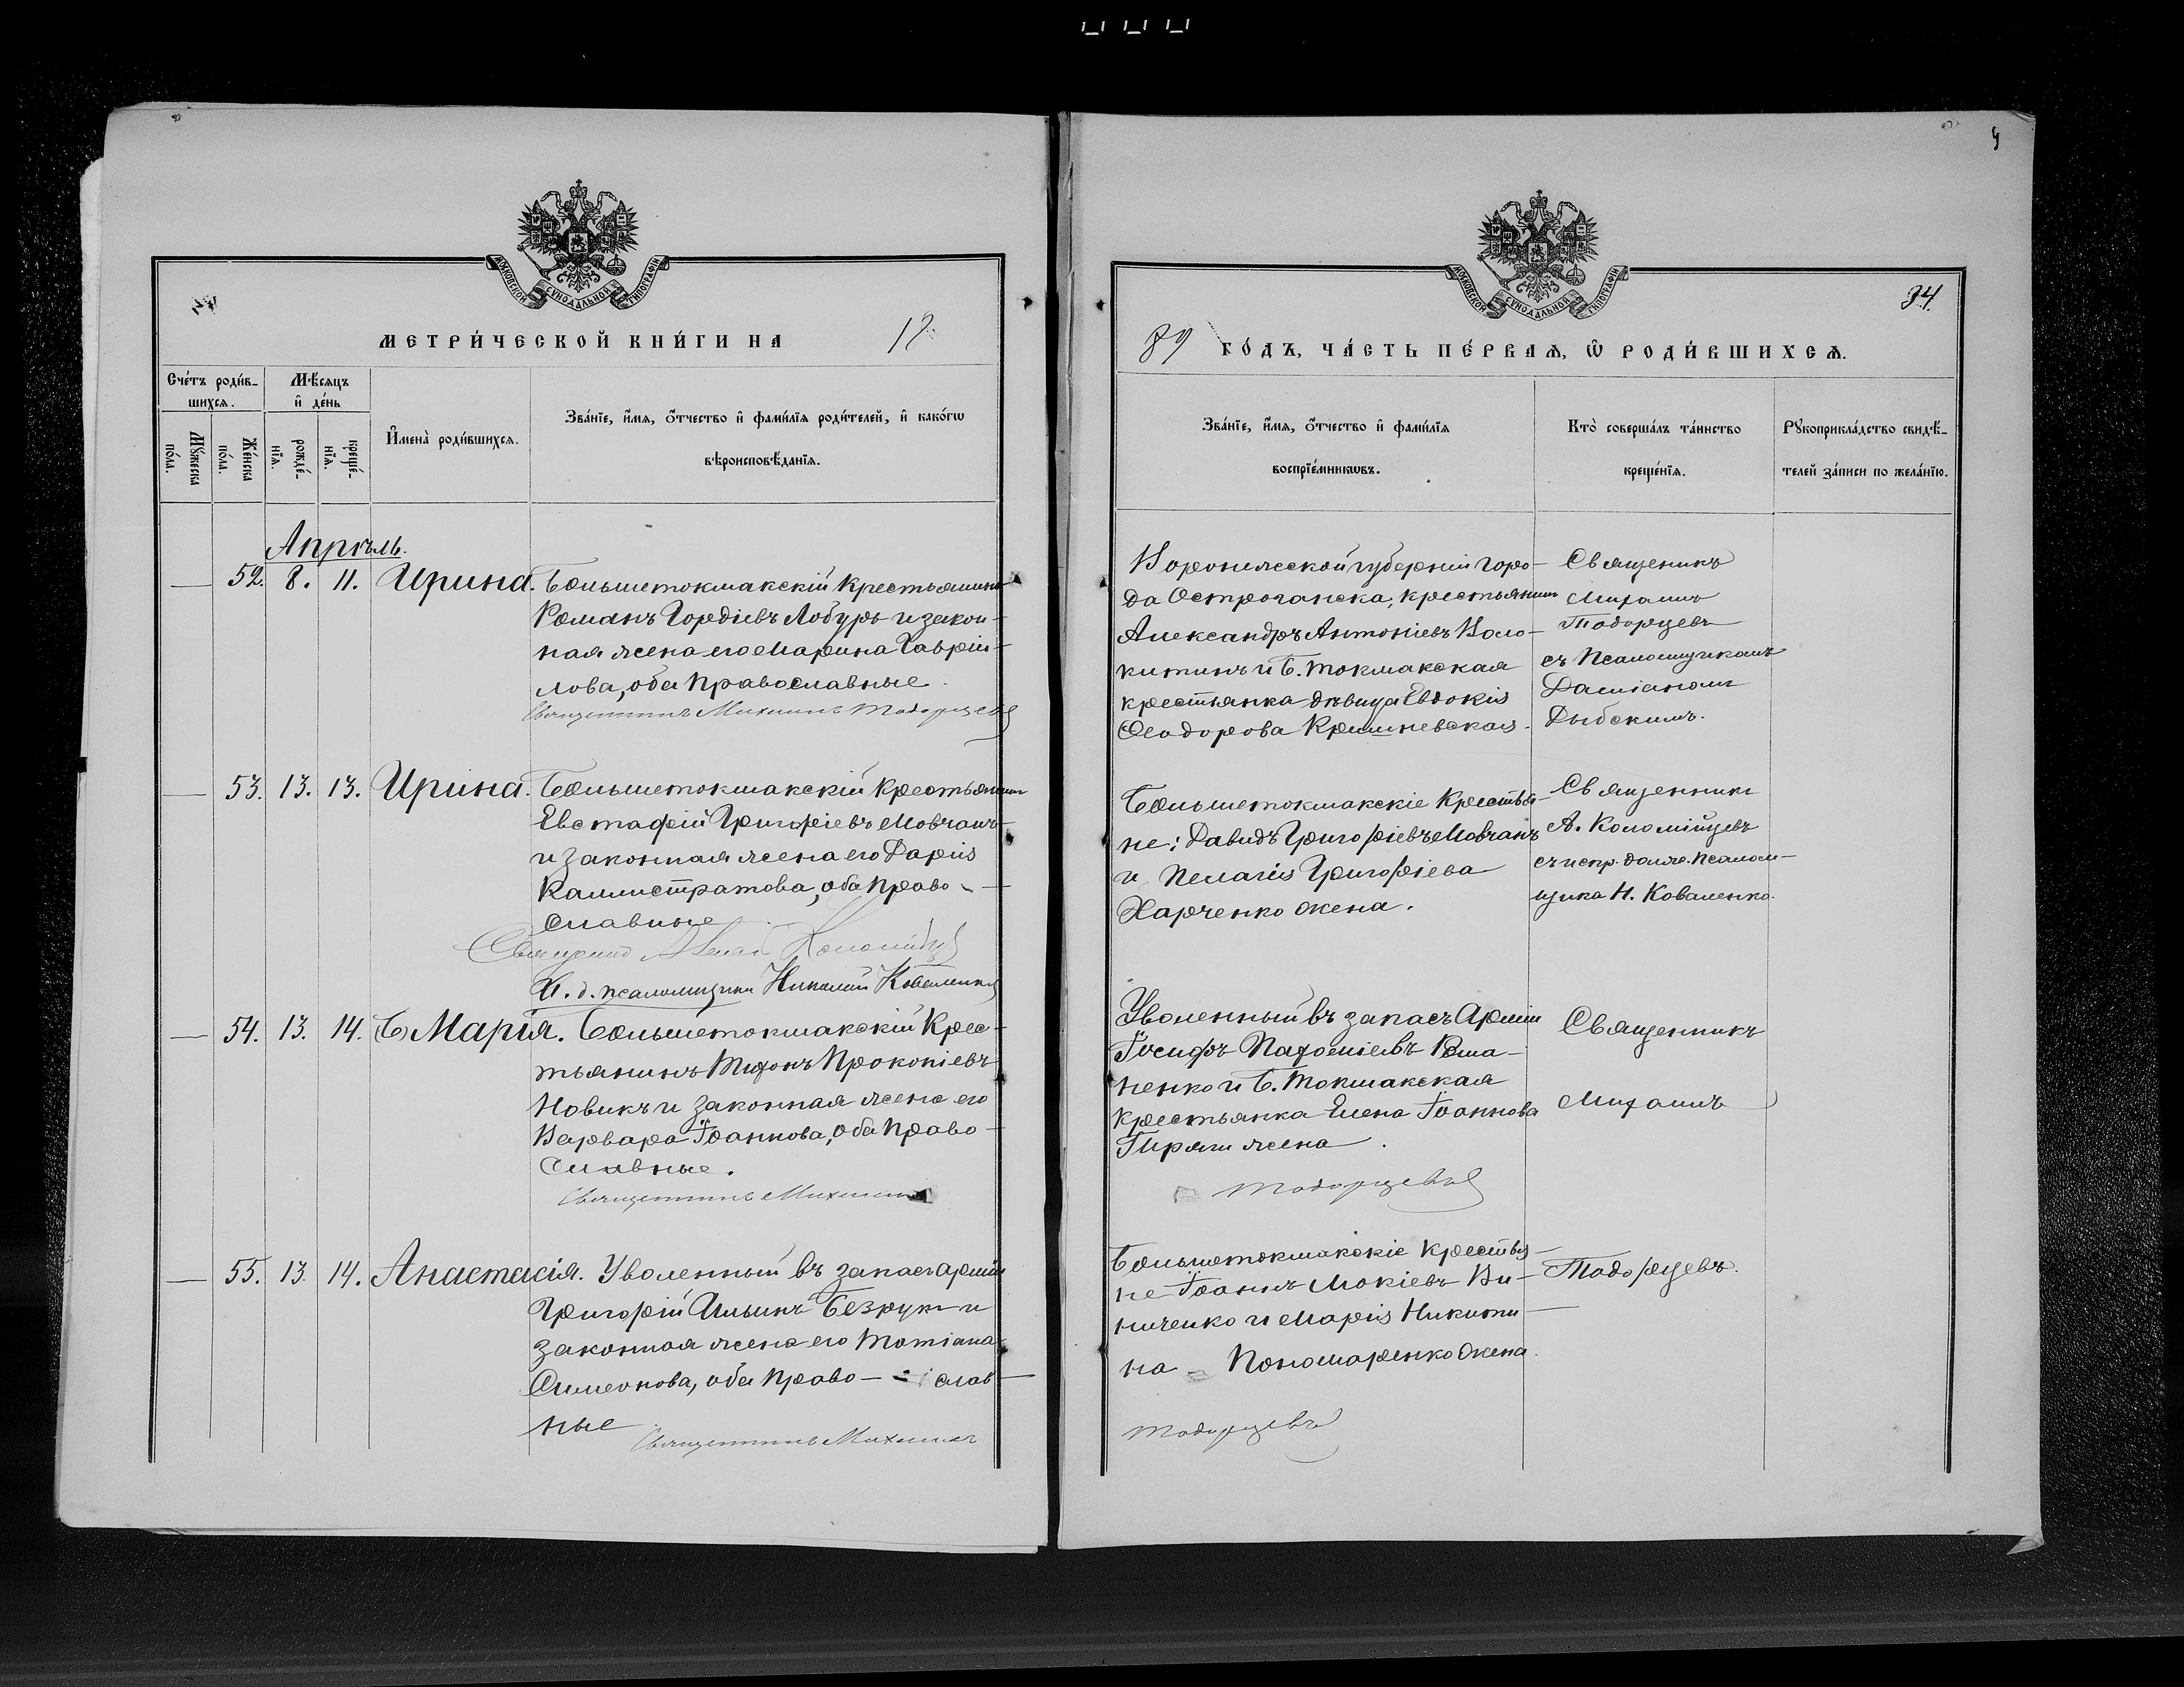 МОСКОВСКОЙ СѴНОДАЛЬНОЙ ТИПОГРАФІИ
МЕТРИ́ЧЕСКОЙ КНИ́ГИ НА 18
Сче́тъ роди́в-
шихсѧ.
Мѣ́сѧцъ
и҆ де́нь
Мꙋ́жеска
по́ла.
Же́нска
по́ла.
рожде́-
нїѧ.
креще́-
нїѧ.
И҆мена̀ роди́вшихсѧ.
Зва́нїе, и҆́мѧ, ѻ҆́тчество и҆ фами́лїѧ роди́телей, и҆ како́гѡ
вѣроисповѣ́данїѧ.
Апрѣль.
52. 8. 11. Ирина. Большетокмакскій крестьянинъ
Романъ Гордіевъ Лобуръ и закон-
ная жена его Марина Гаврiи-
лова, оба православные.
Священникъ Михаилъ Тодорцевъ
53. 13. 13. Ирина. Большетокмакскій крестьянин
Евстафій Григоріевъ Мовчанъ
и законная жена его Дарія
Каллистратова, оба право-
славные
Священникъ Коломійцевъ
И. д. псаломщика Николай Коваленко
54. 13. 14. Марія. Большетокмакскій крес-
тьянинъ Тихонъ Прокопіевъ
Новикъ и законная жена его
Варвара Іоаннова, оба право-
славные.
Священникъ Михаилъ
55. 13. 14. Анастасія. Уволенный въ запасъ арміи
Григорій Ильинъ Безрукъ и
законная жена его Татіана
Симеонова, оба право- слав-
ные
Священникъ Михаилъ
МОСКОВСКОЙ СѴНОДАЛЬНОЙ ТИПОГРАФІИ
34.
89 ГО́ДЪ, ЧА́СТЬ ПЕ́РВАѦ, Ѡ҆ РОДИ́ВШИХСѦ.
Зва́нїе, и҆́мѧ, ѻ҆́тчество и҆ фами́лїѧ
воспрїе́мникѡвъ.
Кто̀ соверша́лъ та́инство
креще́нїѧ.
Рꙋкоприкла́дство свидѣ́-
телей за́писи по жела́нїю.
Воронежской губерніи горо-
да Острогажска, крестьянин
Александръ Антоніевъ Воло-
китинъ и Б. Токмакская
крестьянка дѣвица Евдокія
Ѳеодорова Кришневская.
Священикъ
Михаилъ
Тодорцевъ
съ Псаломщикомъ
Даміаном
Дыбскимъ.
Большетокмакскіе крестья-
не: Давидъ Григоріевъ Мовчанъ
и Пелагія Григоріева
Харченко жена.
Священникъ
А. Коломійцевъ
съ испр. долж. псалом-
щика Н. Коваленко.
Уволенный въ запасъ Арміи
Іосифъ Пахоміевъ Рома-
ненко и Б. Токмакская
крестьянка Елена Іоаннова
жена.
Тодорцевъ
Священникъ
Михаилъ
Большетокмакскіе крестья-
не Іоаннъ Мокіевъ Ви-
ниченко и Марія Никити-
на Пономаренко жена.
Тодорцевъ
Тодорцевъ.